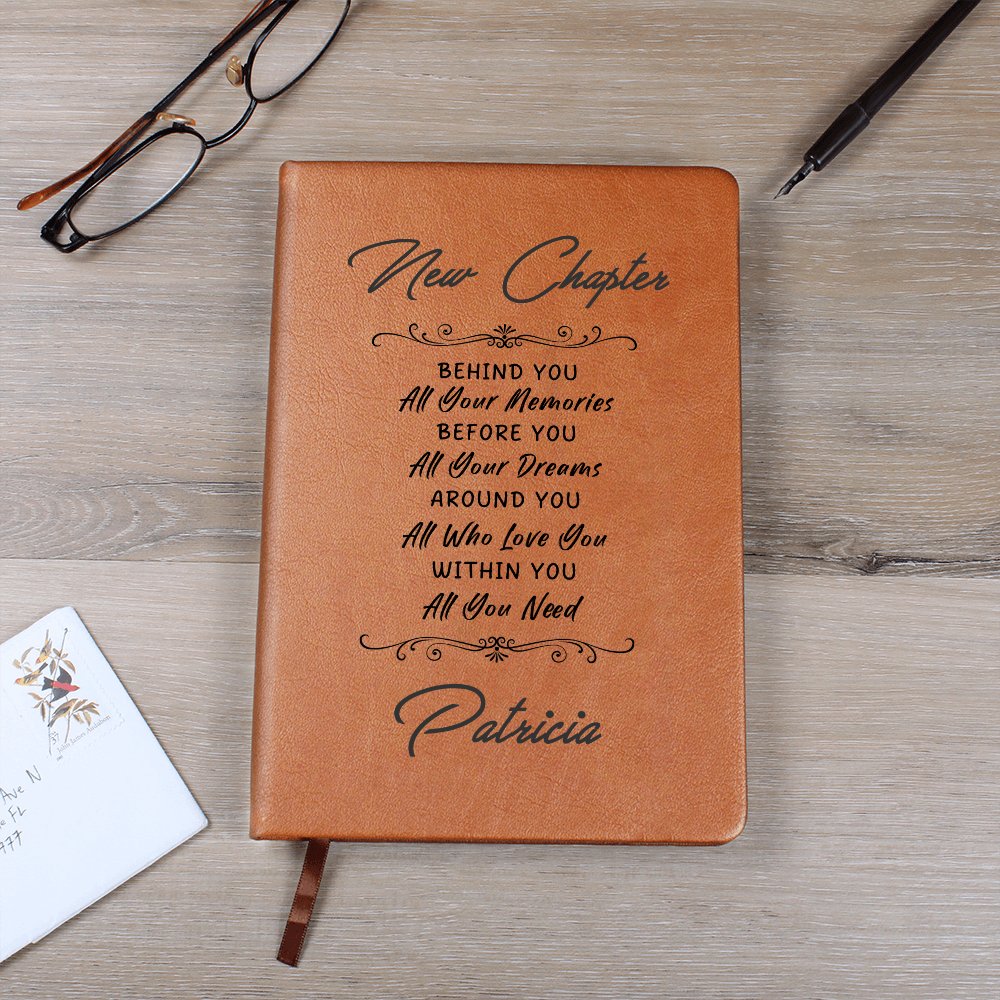 New Chapter
BEHIND YOU
All Your Memories
BEFORE YOU
All Your Dreams
AROUND YOU
All Who Love You
WITHIN YOU
All You Need
Patricia
37
John James Audubon
Ave N
FL
977